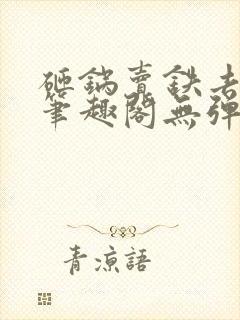 砸鍋賣鉄去
筆趣閣無彈
青涼語